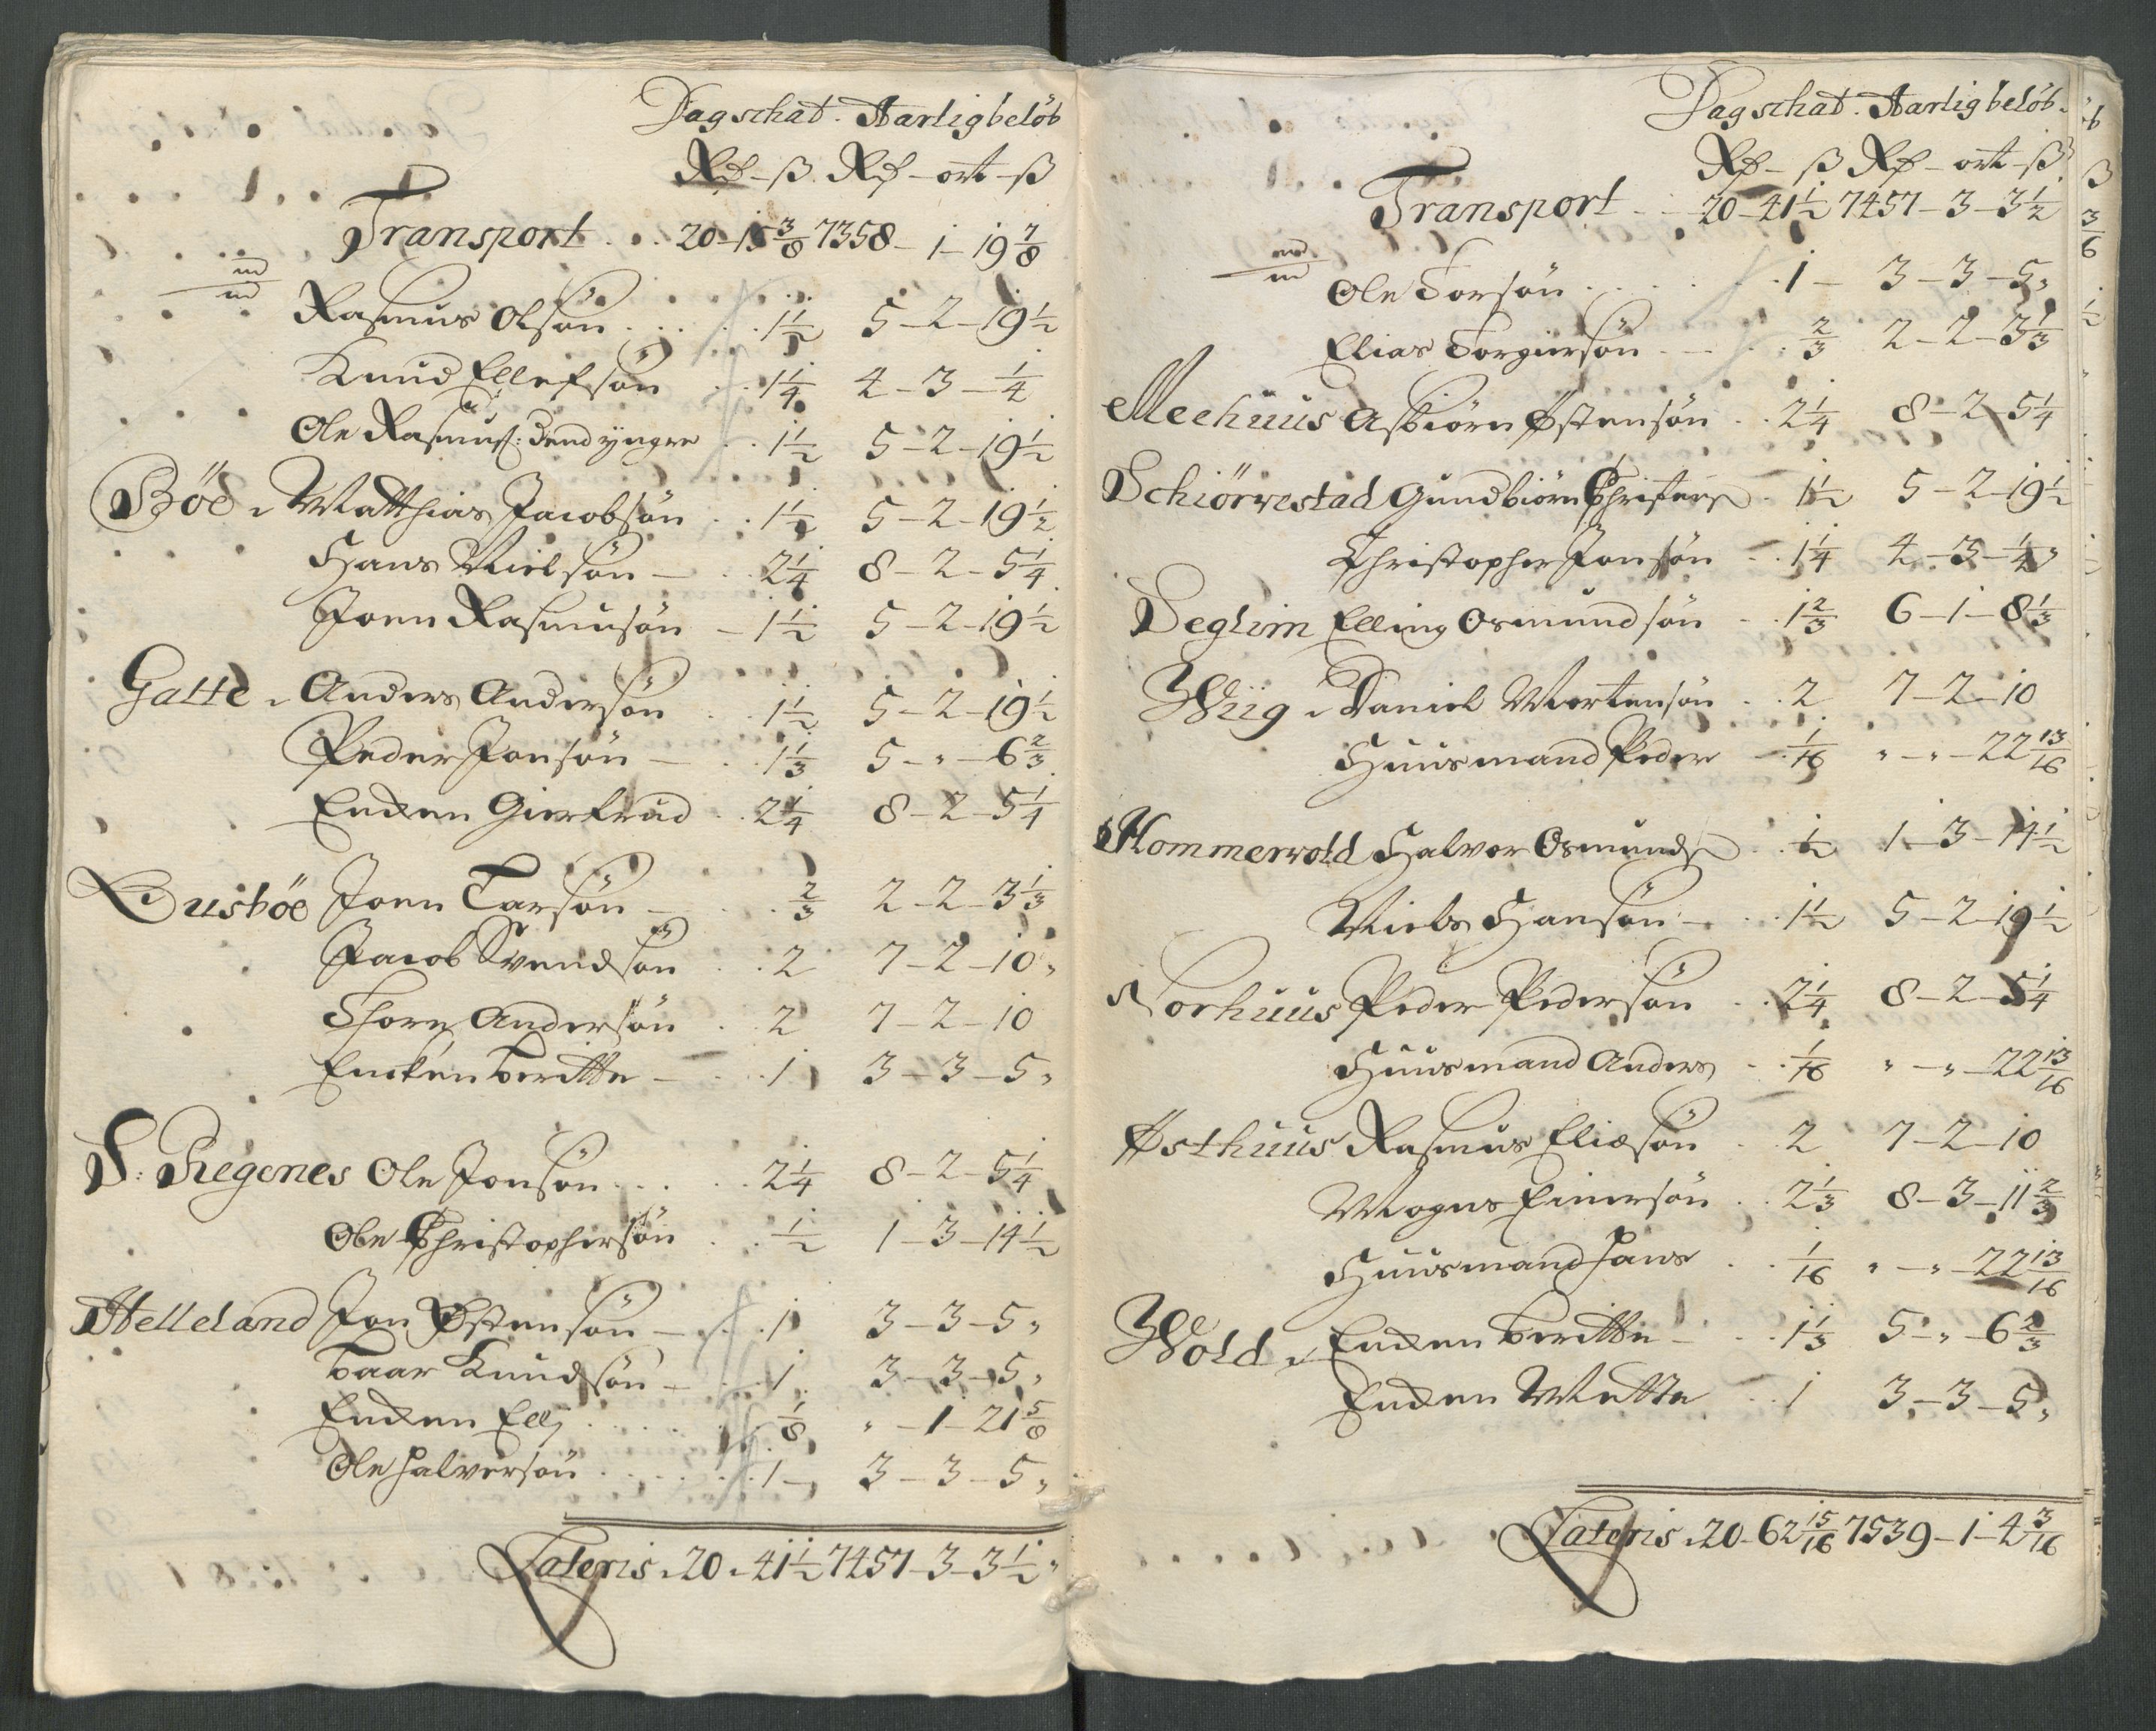 Dagschat. Aarligbelöb
Rd – ß. Rd – ort – ß
Transport . . . 20–15 3/8 7358– 1–19 7/8
Rasmus Olsön . . . . 1 1/2 5–2–19 1/2
Knud Ellefsön . . 1 1/4 4–3– 1/4
Ole Rasmus: dend yngre . . 1 1/2 5–2–19 1/2
Böe Matthias Jacobsön . . 1 1/2 5–2–19 1/2
Hans Nielsön – . . 2 1/4 8–2–5 1/4
Joen Rasmusön – 1 1/2 5–2–19 1/2
Gatte Anders Andersön . . 1 1/2 5–2–19 1/2
Peder Jonsön – . . 1 1/3 5–"–6 2/3
Encken Giertrud . . 2 1/4 8–2–5 1/4
Busböe Joen Tarsön – . . 2/3 2–2–3 1/3
Jacob Svendsön . . 2 7–2–10
Thore Andersön . . 2 7–2–10
Encken Beritte – . . 1 3–3–5
S: Regenes Ole Jonsön . . . . 2 1/4 8–2–5 1/4
Ole Christophersön . . 1/2 1–3–14 1/2
Helleland Jon Østensön – . . 1 3–3–5
Baar Knudsön – . . 1 3–3–5
Encken Elli . . . . 1/8 "–1–21 5/8
Ole Halversön . . . . 1– 3–3–5
Lateris 20–41 1/2 7457–3–3 1/2
Dagschat. Aarligbelöb
Rd – ß Rd – ort – ß
Transport . . 20–41 1/2 7457–3–3 1/2
Ole Torsön . . . . 1– 3–3–5
Elias Torgiersön – . . 2/3 2–2–3 1/3
Meehuus Asbiörn Østensön . . 2 1/4 8–2–5 1/4
Schiörvestad Gundbiörn Christens . 1 1/2 5–2–19 1/2
Christopher Jonsön – . . 1 1/4 4–3– 1/4
Seglem Elling Osmundsön . . 1 2/3 6–1–8 1/3
Wiig Daniel Mortensön . . 2 7–2–10
Huusmand Peder – 1/16 "–"–22 13/16
Hommerwold Halvor Osmunds . . 1/2 1–3–14 1/2
Niels Hansön – . . 1 1/2 5–2–19 1/2
Norhuus Peder Pedersön . . 2 1/4 8–2–5 1/4
Huusmand Anders . . 1/16 "–"–22 13/16
Østhuus Rasmus Eliæsön . . 2 7–2–10
Mogns Einersön . . 2 1/3 8–3–11 2/3
Huusmand Hans . . 1/16 "–"–22 13/16
Wold Encken Beritte – . . 1 1/3 5–"–6 2/3
Encken Mette . . 1 3–3–5
Lateris 20–62 15/16 7539–1–4 3/16